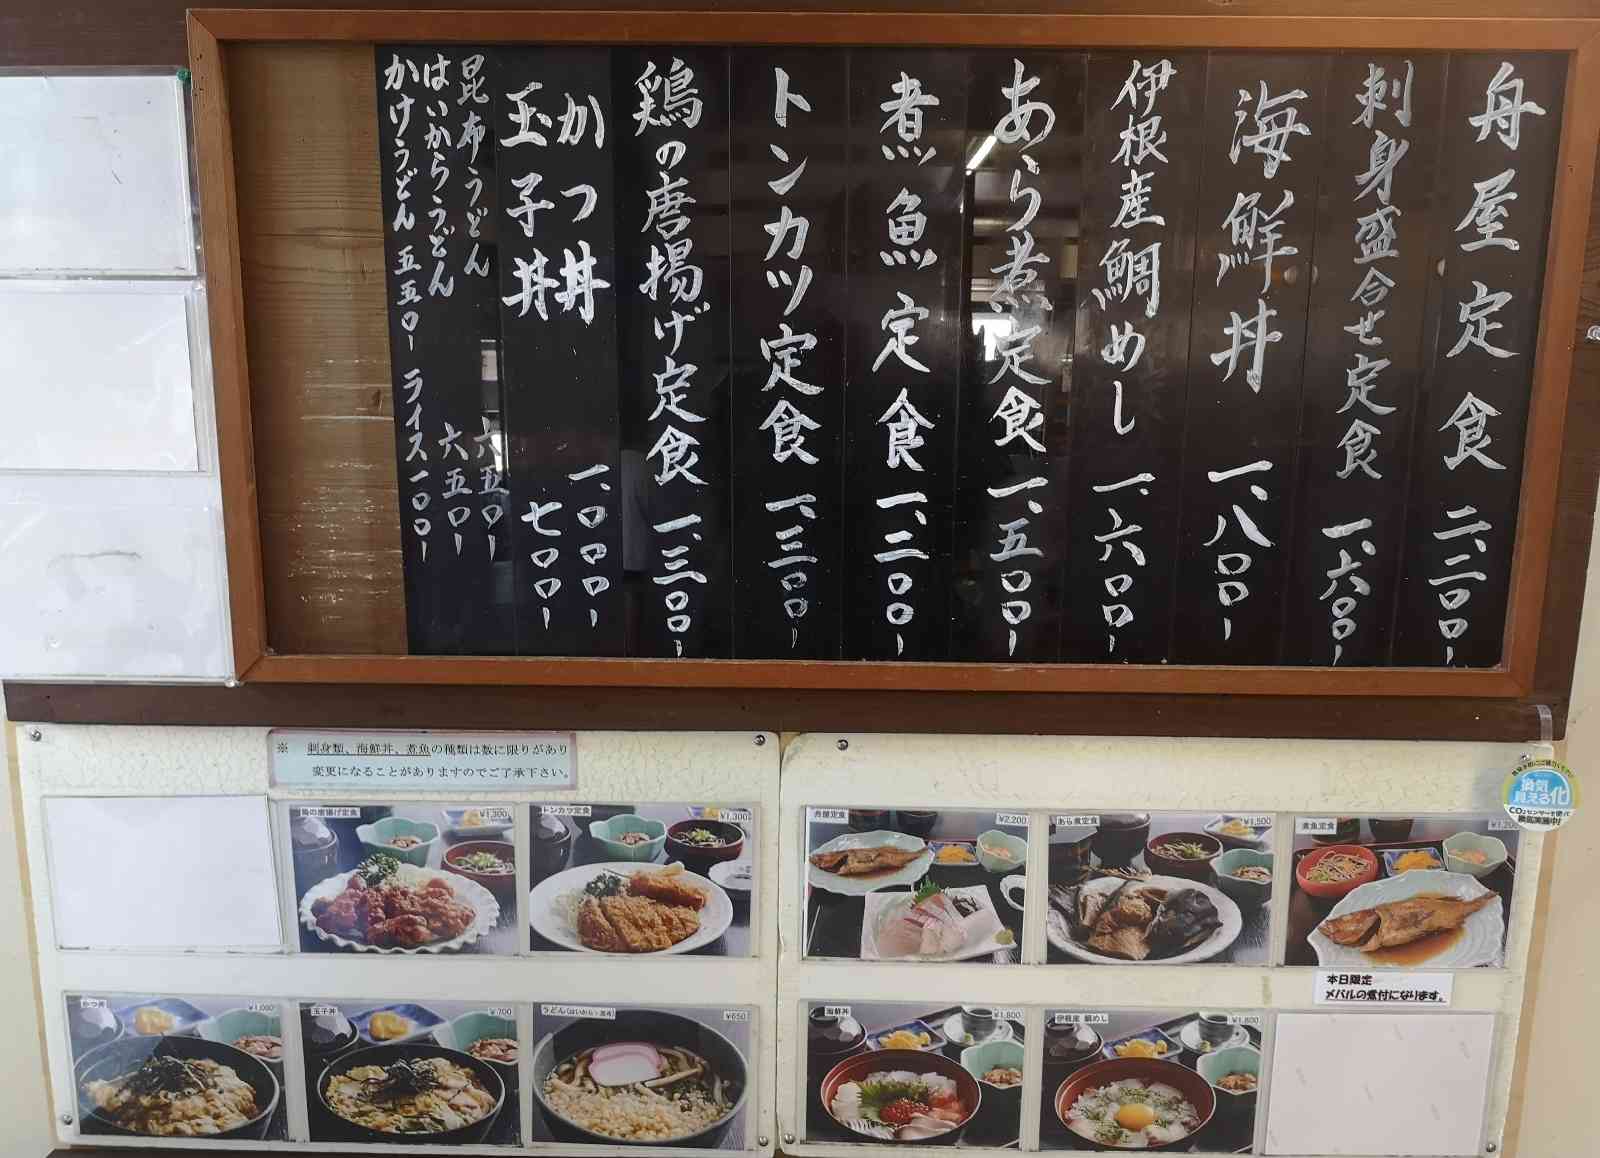 舟屋定食 二、二〇〇-
刺身盛合せ定食 一、六〇〇-
海鮮丼 一、八〇〇-
伊根産鯛めし 一、六〇〇-
あら煮定食 一、五〇〇-
煮魚定食 一、二〇〇-
トンカツ定食 一、三〇〇-
鶏の唐揚げ定食 一、三〇〇-
かつ丼 一、〇〇〇-
玉子丼 七〇〇-
昆布うどん 六五〇-
はいからうどん 六五〇-
かけうどん 五五〇- ライス一〇〇-
※ 刺身類、海鮮丼、煮魚の種類は数に限りがあり
変更になることがありますのでご了承下さい。
鶏の唐揚げ定食 ¥1,300
トンカツ定食 ¥1,300
舟屋定食 ¥2,200
あら煮定食 ¥1,500
煮魚定食 ¥1,200
本日限定
メバルの煮付になります。
かつ丼 ¥1,000
玉子丼 ¥700
うどん(はいから・昆布) ¥650
海鮮丼 ¥1,800
伊根産 鯛めし ¥1,600
換気
見える化
CO2センサーを使って
換気実施中!